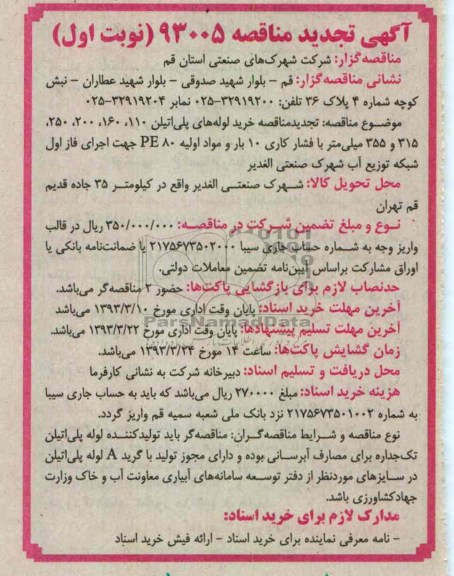 آگهی تجدید مناقصه ۹۳۰۰۵ (نوبت اول)
مناقصه‌گزار: شرکت شهرک‌های صنعتی استان قم
نشانی مناقصه‌گزار: قم – بلوار شهید صدوقی – بلوار شهید عطاران – نبش
کوچه شماره ۴ پلاک ۳۶ تلفن: ۳۲۹۱۹۲۰۰-۰۲۵ نمابر ۳۲۹۱۹۲۰۴-۰۲۵
موضوع مناقصه: تجدیدمناقصه خرید لوله‌های پلی‌اتیلن ۱۱۰، ۱۶۰، ۲۰۰، ۲۵۰،
۳۱۵ و ۳۵۵ میلی‌متر با فشار کاری ۱۰ بار و مواد اولیه PE ۸۰ جهت اجرای فاز اول
شبکه توزیع آب شهرک صنعتی الغدیر
محل تحویل کالا: شهرک صنعتی الغدیر واقع در کیلومتر ۳۵ جاده قدیم
قم تهران
نوع و مبلغ تضمین شرکت در مناقصه: ۳۵۰/۰۰۰/۰۰۰ ریال در قالب
واریز وجه به شماره حساب جاری سیبا ۲۱۷۵۶۷۳۵۰۲۰۰۰ یا ضمانت‌نامه بانکی یا
اوراق مشارکت براساس آیین‌نامه تضمین معاملات دولتی.
حدنصاب لازم برای بازگشایی پاکت‌ها: حضور ۲ مناقصه‌گر می‌باشد.
آخرین مهلت خرید اسناد: پایان وقت اداری مورخ ۱۳۹۳/۳/۱۰ می‌باشد
ParsNamadData
آخرین مهلت تسلیم پیشنهادها: پایان وقت اداری مورخ ۱۳۹۳/۳/۲۲ می‌باشد.
زمان گشایش پاکت‌ها: ساعت ۱۴ مورخ ۱۳۹۳/۳/۲۴ می‌باشد.
محل دریافت و تسلیم اسناد: دبیرخانه شرکت به نشانی کارفرما
هزینه خرید اسناد: مبلغ ۲۷۰۰۰۰ ریال می‌باشد که باید به حساب جاری سیبا
به شماره ۲۱۷۵۶۷۳۵۰۱۰۰۲ نزد بانک ملی شعبه سمیه قم واریز گردد.
نوع مناقصه و شرایط مناقصه‌گران: مناقصه‌گر باید تولیدکننده لوله پلی‌اتیلن
تک‌جداره برای مصارف آبرسانی بوده و دارای مجوز تولید با گرید A لوله پلی‌اتیلن
در سایزهای موردنظر از دفتر توسعه سامانه‌های آبیاری معاونت آب و خاک وزارت
جهادکشاورزی باشد.
مدارک لازم برای خرید اسناد:
– نامه معرفی نماینده برای خرید اسناد – ارائه فیش خرید اسناد